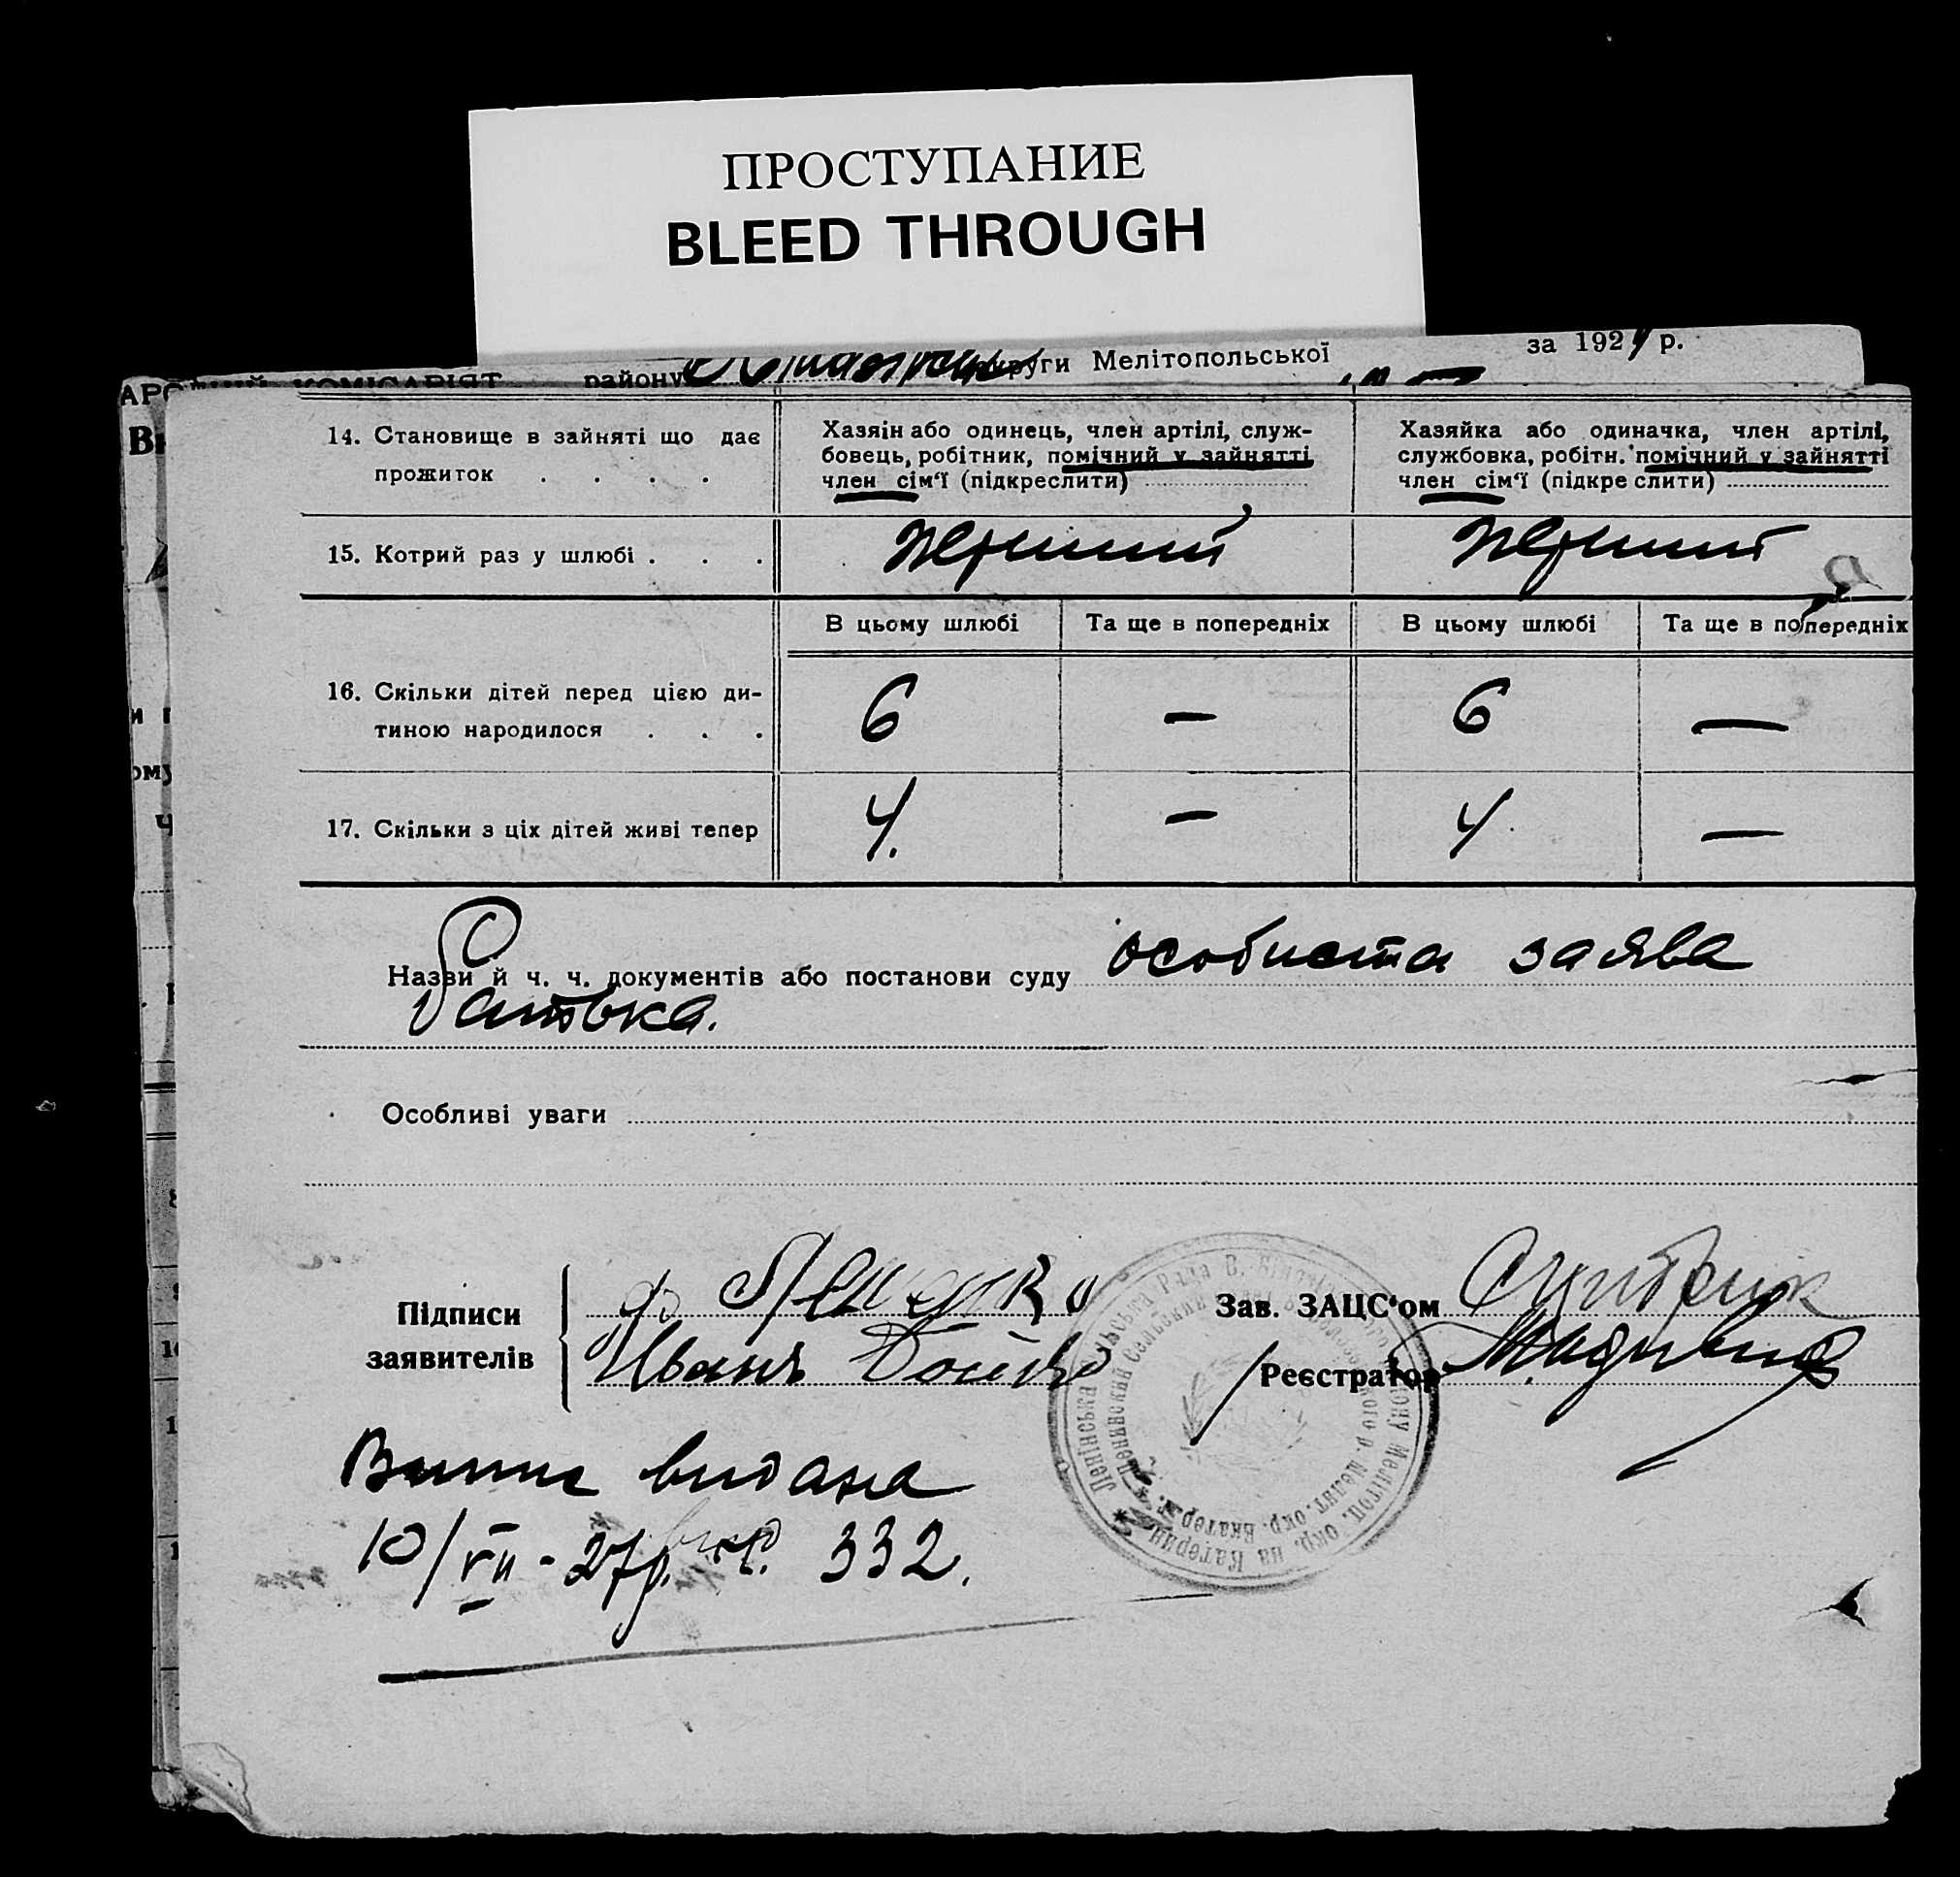 ПРОСТУПАНИЕ
BLEED THROUGH
району округи Мелітопольської за 192 р.
14. Становище в зайняті що дає
прожиток . . . .
Хазяін або одинець, член артілі, служ-
бовець, робітник, помічний у зайнятті
член сім'ї (підкреслити)
Хазяйка або одиначка, член артілі,
службовка, робітн. помічний у зайнятті
член сім'ї (підкреслити)
15. Котрий раз у шлюбі . . .
перший
перший
В цьому шлюбі
Та ще в попередніх
В цьому шлюбі
Та ще в попередніх
16. Скільки дітей перед цією ди-
тиною народилося . . .
6 — 6 —
17. Скільки з ціх дітей живі тепер
4. — 4 —
Назви й ч. ч. документів або постанови суду особиста заява
батька.
Особливі уваги
Підписи
заявителів
Иванъ Бойко
Зав. ЗАЦС'ом
Реєстратор
Випис видана
10/VII - 27р. 332.